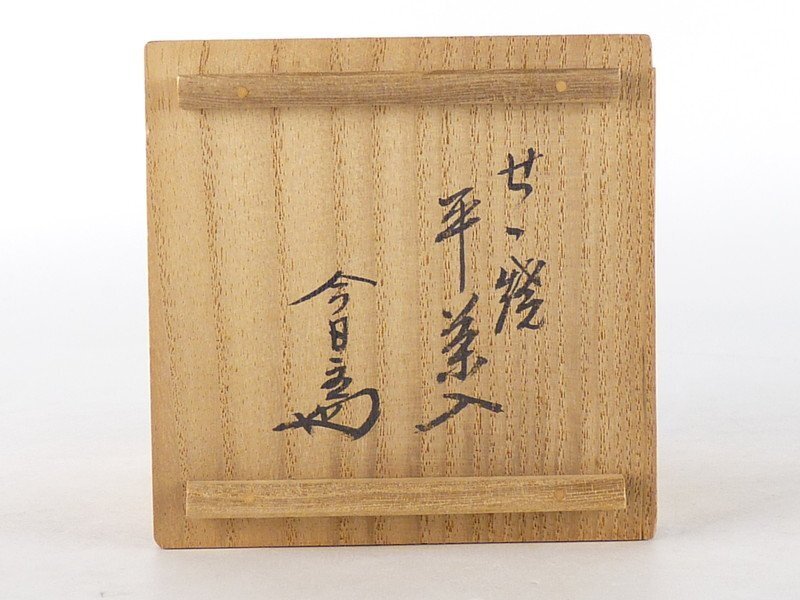 せゝ焼
平茶入
今日庵